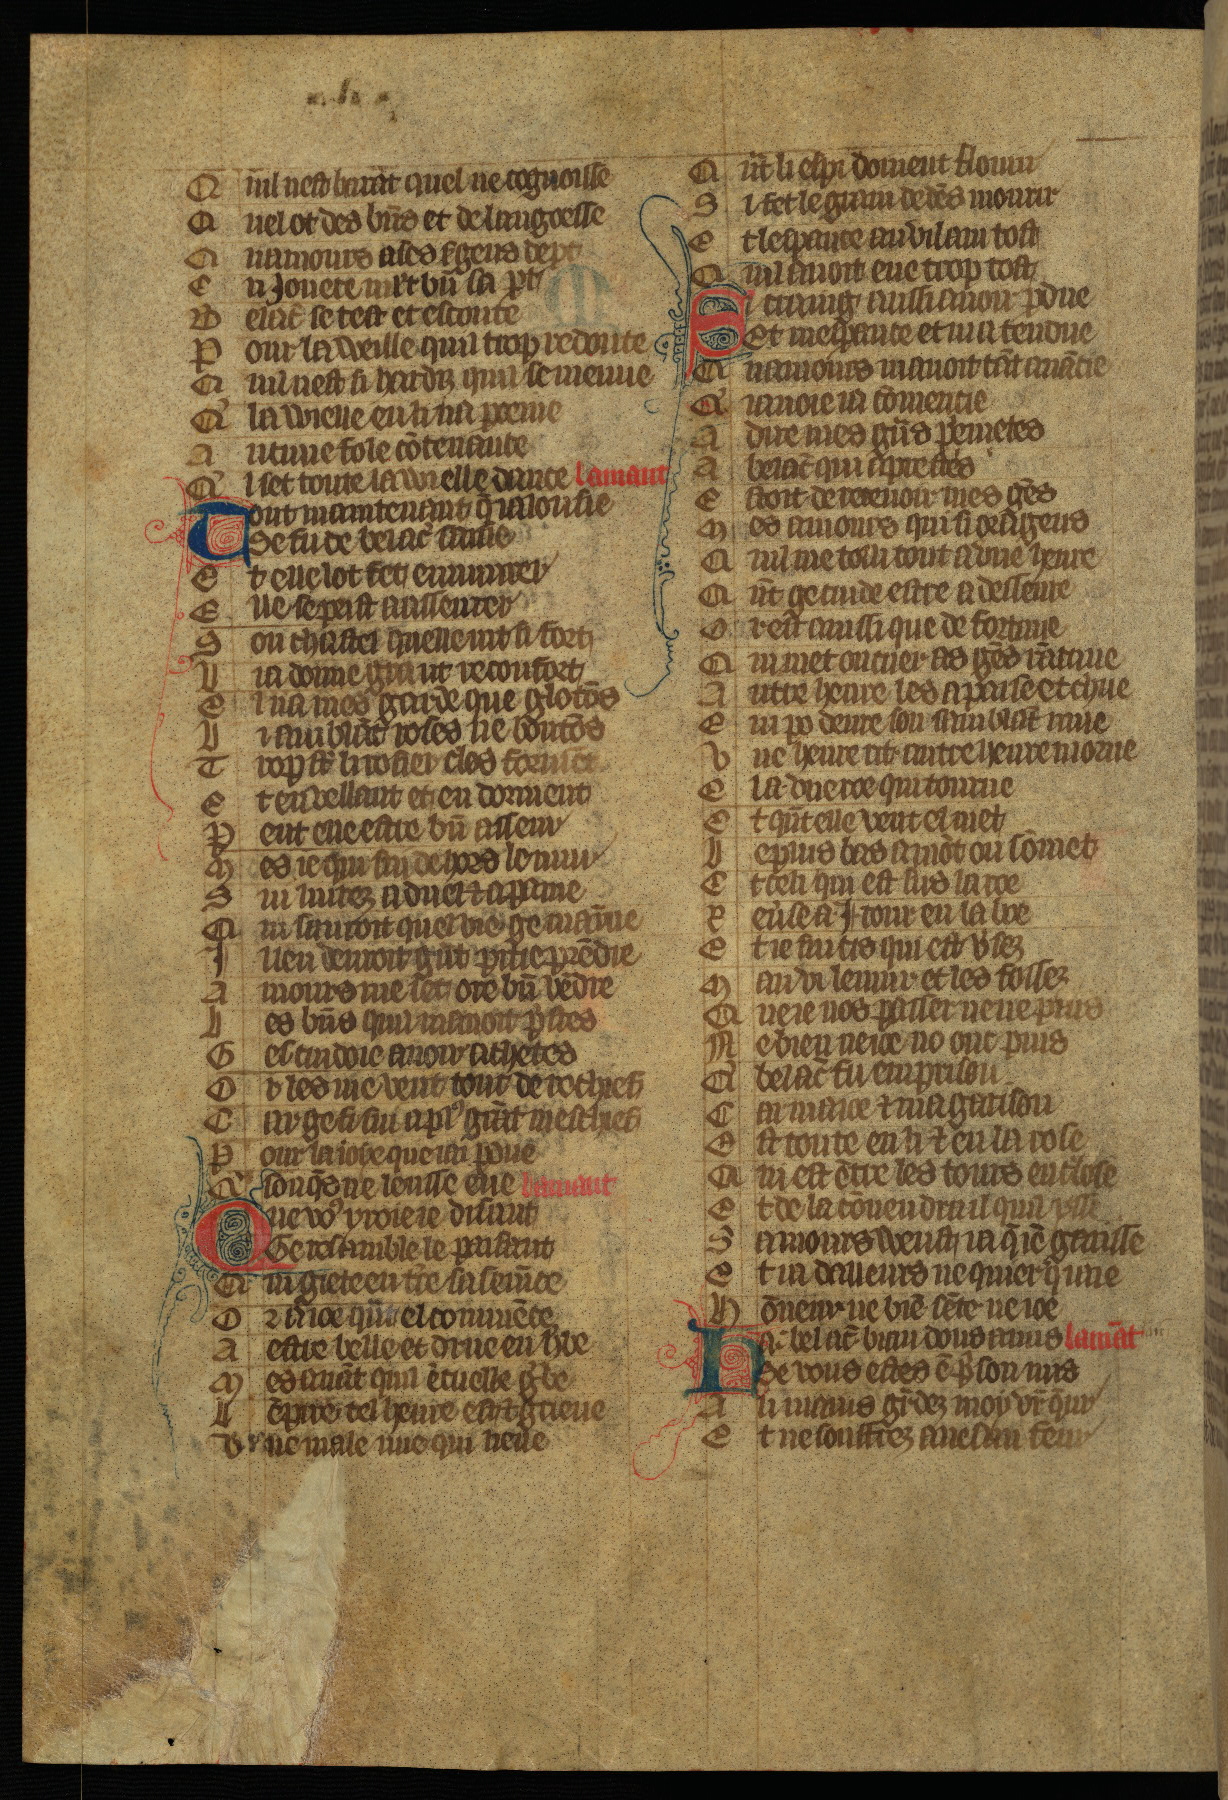 Q uil nest barat quel ne cognoisse
Q uel ot des bñs et de langoesse
Q namours a ses sgens dept
E n jouente mlt bñ sa pt
B elac̃ se test et escoute
P our la weille quil trop redoute
Q uil nest si hardiz quil se meuue
Q la vielle en li na preuue
A ucune fole cõtenance
Q i set toute la vielle dance lamant
Tout maintenant q̃ ialousie
Se fu de belac̃ saisie
E t elle lot fet enmurer
E lle se prist a asseurer
S on chastel quelle vit si fort
L i a donne grant reconfort
E l na mes garde que glotõs
L i amblãt roses ne boutõs
T rop st̃ li rosier clos formẽt
E t en vellant et en dorment
P eut elle estre bñ asseur
M es ie qui sui dehors le mur
S ui liurez a duel z a paine
Q ui sauroit quel vie ge maine
I l len deuroit grãt pitie prẽdre
A mours me set ore bñ vẽdre
L es bñs quil mauoit p̃stes
G es cuidoie auoir achetes
O r les me vent tout de rechief
C ar ge si sui a pl9 grãt meschief
P our la ioie que iai pdue
Q sonq̃s ne leusse eue lamant
Que vo9 yroie ie disant
Ge resamble le paisant
Q ui giete en tre sa semẽce
O r a ioie qũt el commẽce
A estre belle et drue en h̾be
M es auãt quil ẽ cuelle g̾be
L ẽpire tel heure est z grieue
V ne male nue qui lieue
Q ũt li espi doiuent flourir
S i fet le grain dedẽs mourir
E t lesperance au vilain tost
Q uil auoit eue trop tost
Si craing aussi auoir pdue
Et mesperance et matendue
Q uamours mauoit tãt auãcie
Q iauoie ia cõmencie
A dire mes grãs priuetes
A belac̃ qui aprestes
E stoit de receuoir mes ges
M es amours qui si oltragens
Q uil me toli tout a vne heure
Q ũt ge cuide estre a desseure
O r est aussi que de fortune
Q ui met ou cuer as ges rãcune
A utre heure les apaise et chue
E n po deure son samblãt mue
V ne heure rit autre heure morne
E la vne roe qui tourne
E t qũt elle veut el met
L e plus bas amõt ou sõmet
E t celi qui est sus la roe
R euerse a j tour en la boe
E t ie sui cis qui est v̾sez
M ar vi le mur et les fossez
Q ue ie nos passer ne ne puis
N e bien ne ioe no onc puis
Q belac̃ fu emprison
C ar ma ioe z ma garison
E st toute en li z en la rose
Q ui est ẽtre les tours enclose
E t de la cõuendra il quil ysse
S amours veust ia q̃ ie garisse
E t ia dalleurs ne quier q̃ iaie
H õneur ne biẽ sẽte ne ioe
Ha belac̃ biau dous amis lamãt
Se vous estes ẽ p̾son mis
A u mains gr̃dez moy vr̃e q̃ur
E t ne souffrez a nesun feur